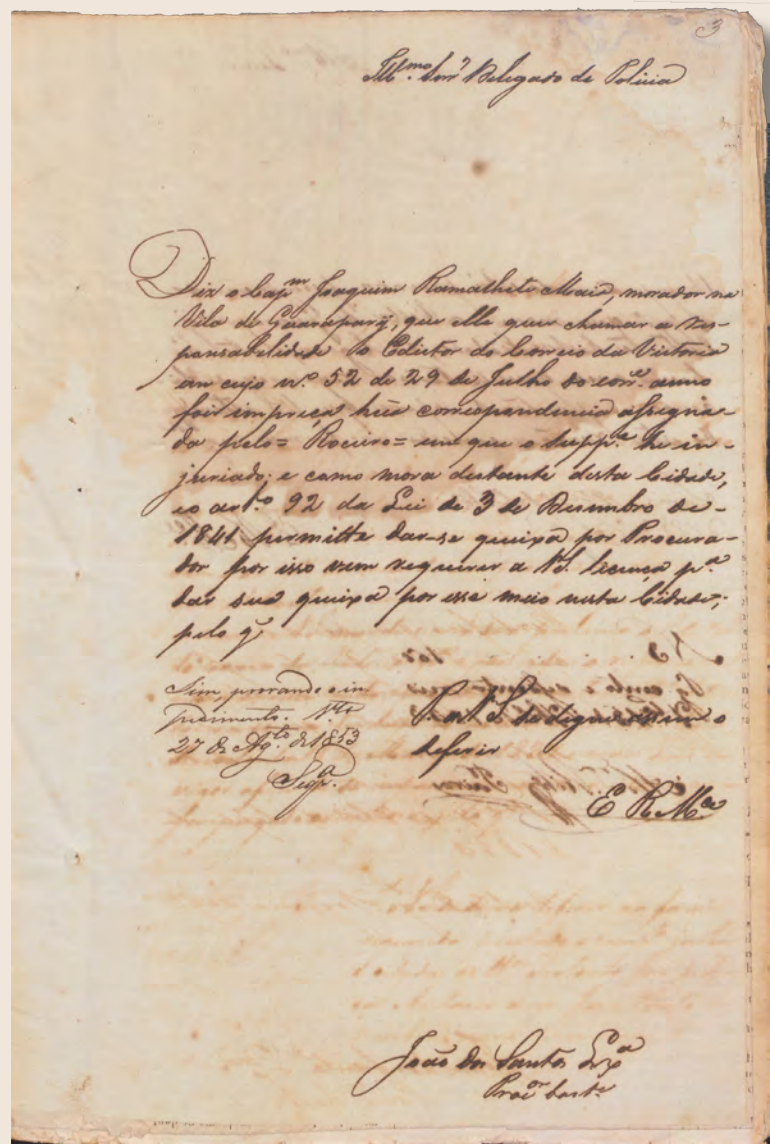 3
Ill.mo Snr. Delegado de Policia
Diz o Cap.m Joaquim Ramalhete Maio, morador na
Vila de Guarapary, que elle quer chamar a res-
ponsabilidade o Edictor do Correio da Victoria
em cujo n.º 52 de 29 de Julho do corr.e anno
foi impreça hũa correspondencia assigna-
da pelo = Roceiro = em que o Supp.e he in-
juriado; e como mora destante desta Cidade,
e o art.º 92 da Lei de 3 de Desembro de
1841 permitte dar-se queixa por Procura-
dor por isso vem requerer a V.S. licença p.a
dar sua queixa por esse meio nesta Cidade;
pelo q̃
P. a V.S. se digne assim o
deferir
E R M.ce
Sim, prorando o im
pedimento. V.ta
27 de Ag.to de 1853
João dos Santos
Proc.or bast.e